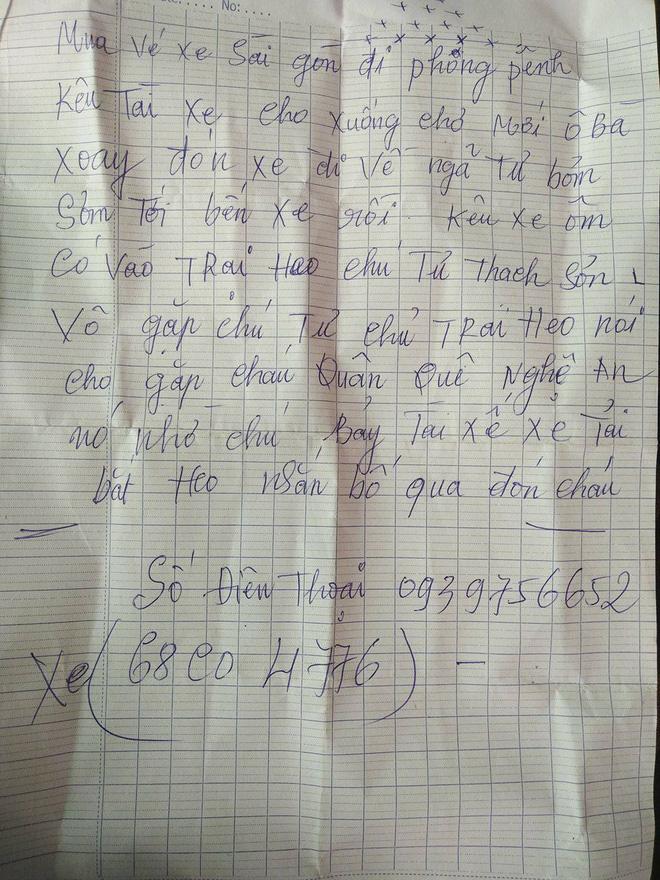 No:....
Mua vé xe Sài gòn đi phông pênh
Kêu Tài xe cho xuống chợ Mới Ô Bà
xoay đón xe đi Về ngã Tư bốm
Sơm Tới bến xe rồi. Kêu xe ôm
Có Vào TRại Heo chú Tư Thach Sơn
Vô gặp chú Tư chủ TRại Heo nói
cho gặp cháu Quân Quê Nghệ An
nó nhờ chú Bảy Tài xế xe Tải
bắt Heo nhắn bố qua đón cháu
Số Điện Thoại 0939756652
Xe (68 CO 4776) –